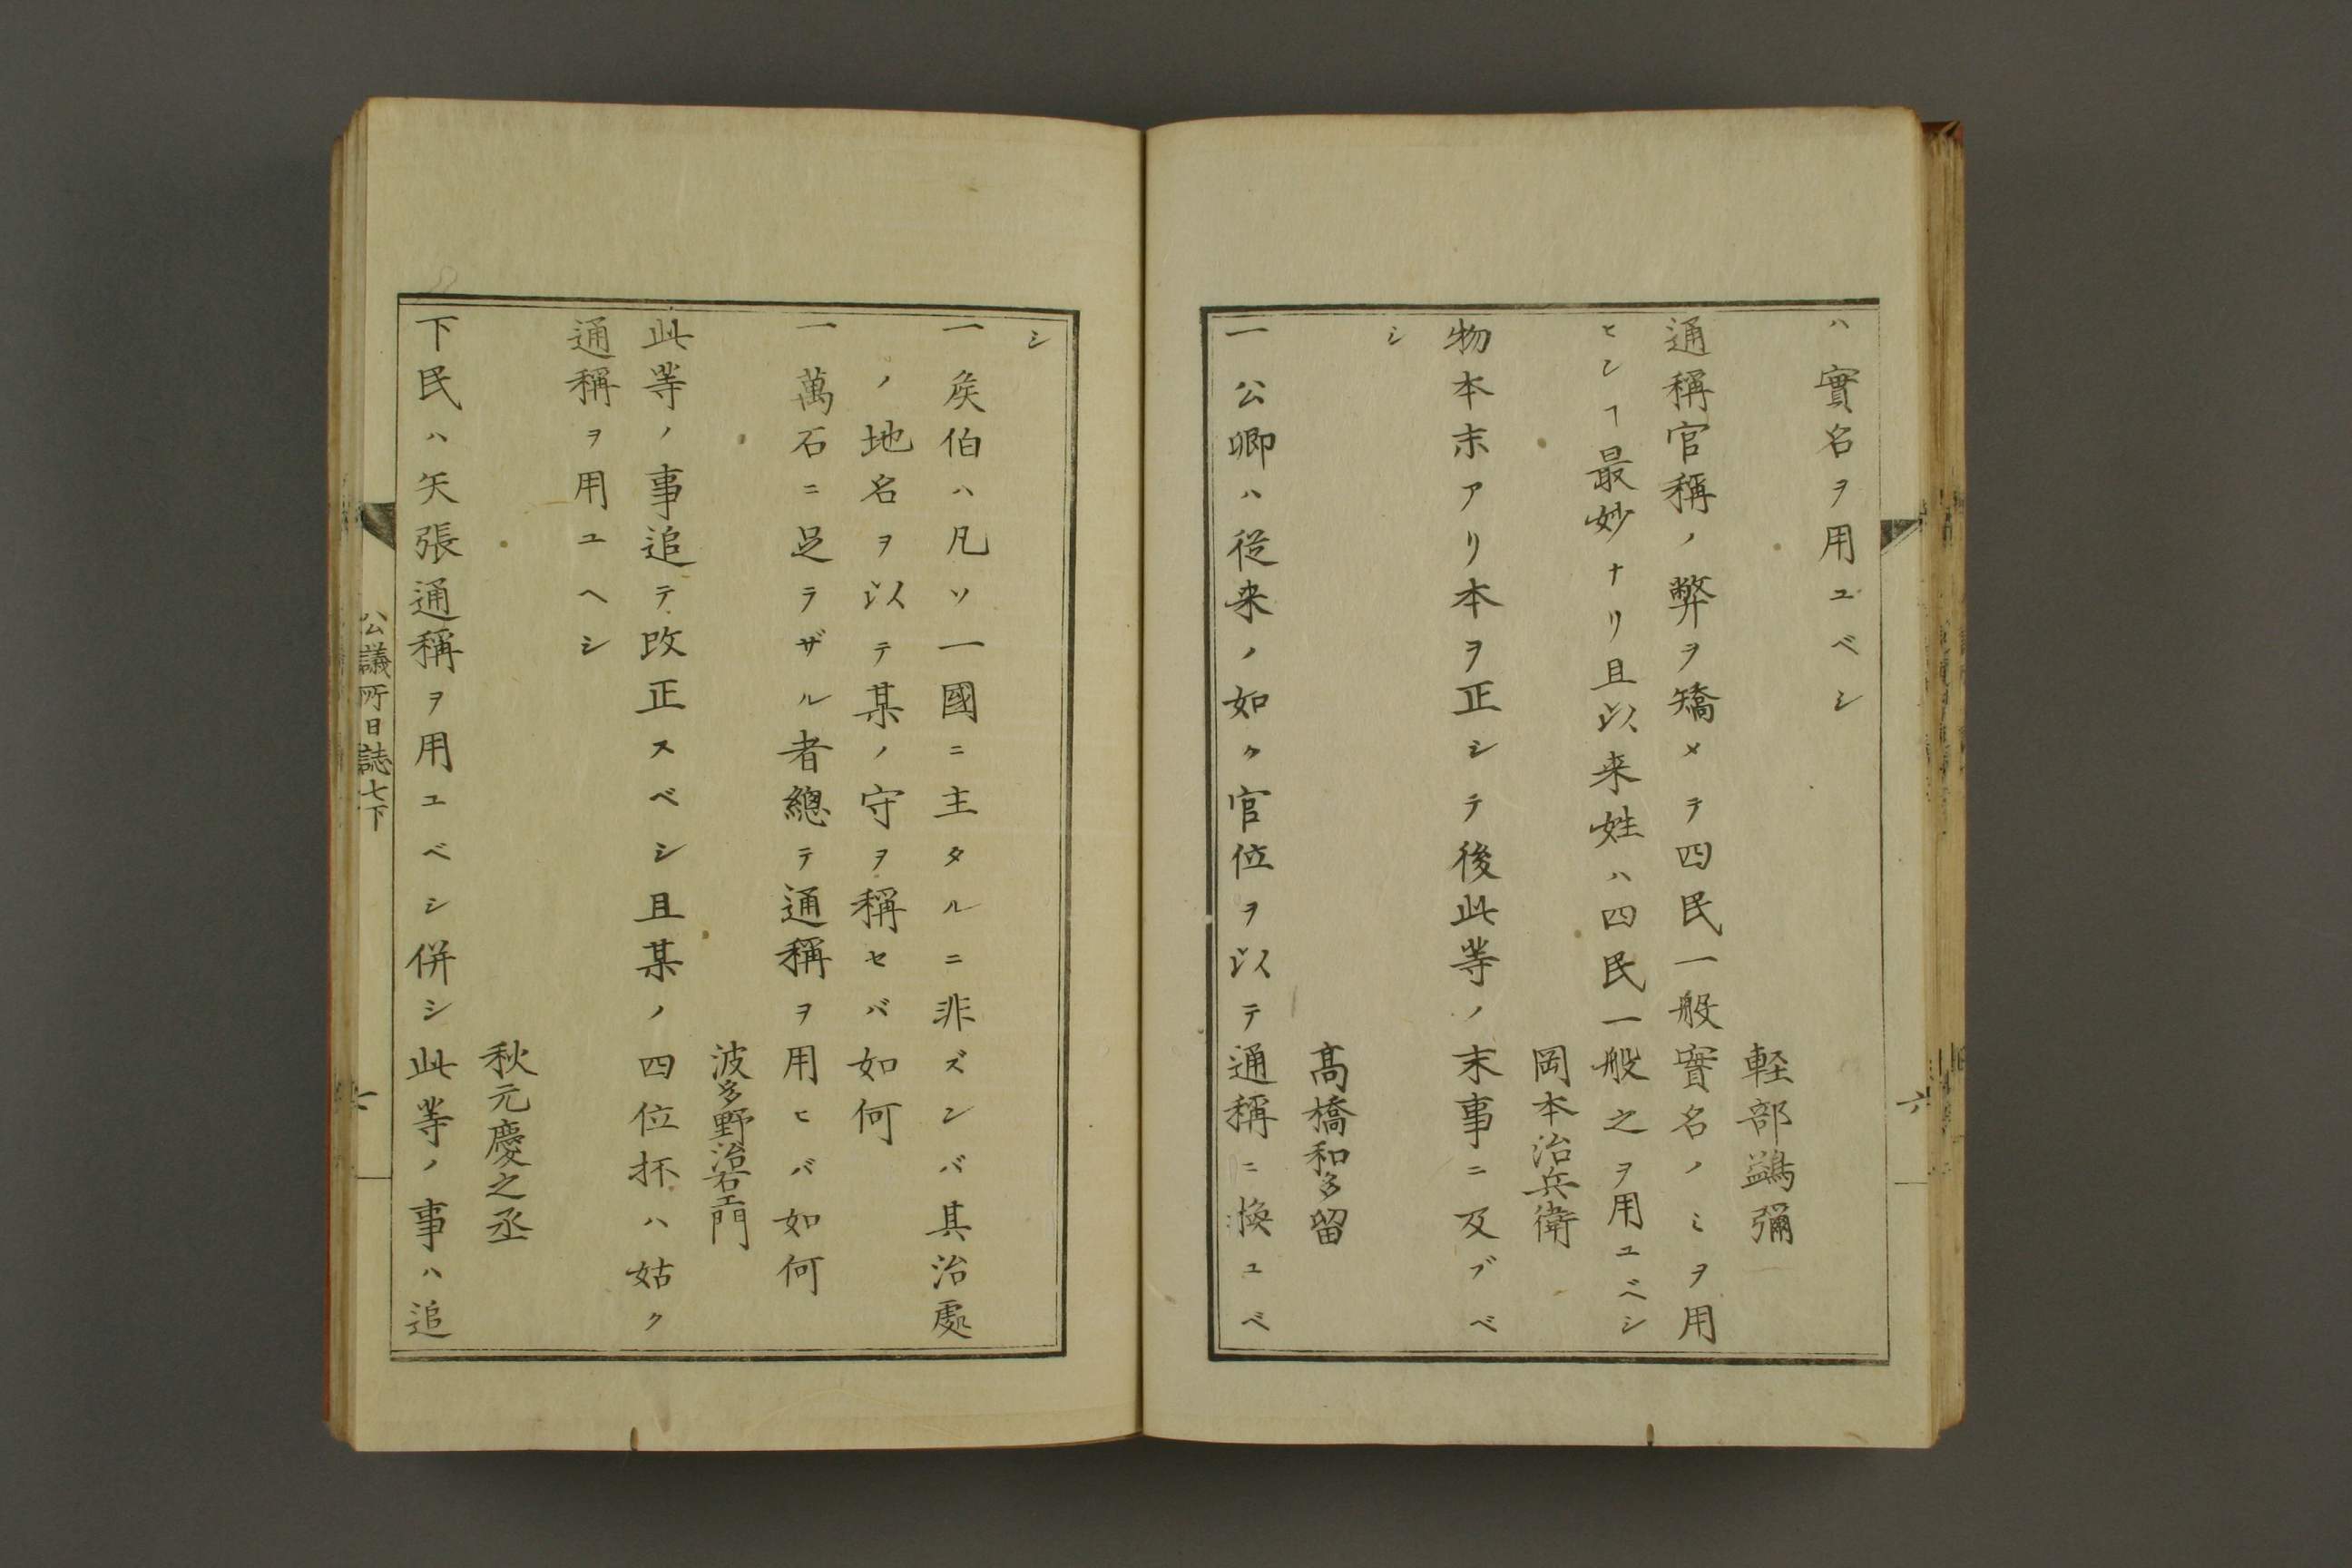 ハ實名ヲ用ユベシ
軽部鷁彌
通稱官稱ノ弊ヲ矯メテ四民一般實名ノミヲ用
ヒンヿ最妙ナリ且以来姓ハ四民一般之ヲ用ユベシ
岡本治兵衛
物本末アリ本ヲ正シテ後此等ノ末事ニ及ブベ
シ
髙橋和多留
一公卿ハ従来ノ如ク官位ヲ以テ通稱ニ換ユベ
六
シ
一矦伯ハ凡ソ一國ニ主タルニ非ズンバ其治處
ノ地名ヲ以テ某ノ守ヲ稱セバ如何
一萬石ニ足ラザル者總テ通稱ヲ用ヒバ如何
波多野治右エ門
此等ノ事追テ改正スベシ且某ノ四位抔ハ姑ク
通稱ヲ用ユヘシ
秋元慶之丞
下民ハ矢張通稱ヲ用ユベシ併シ此等ノ事ハ追
公議所日誌七下